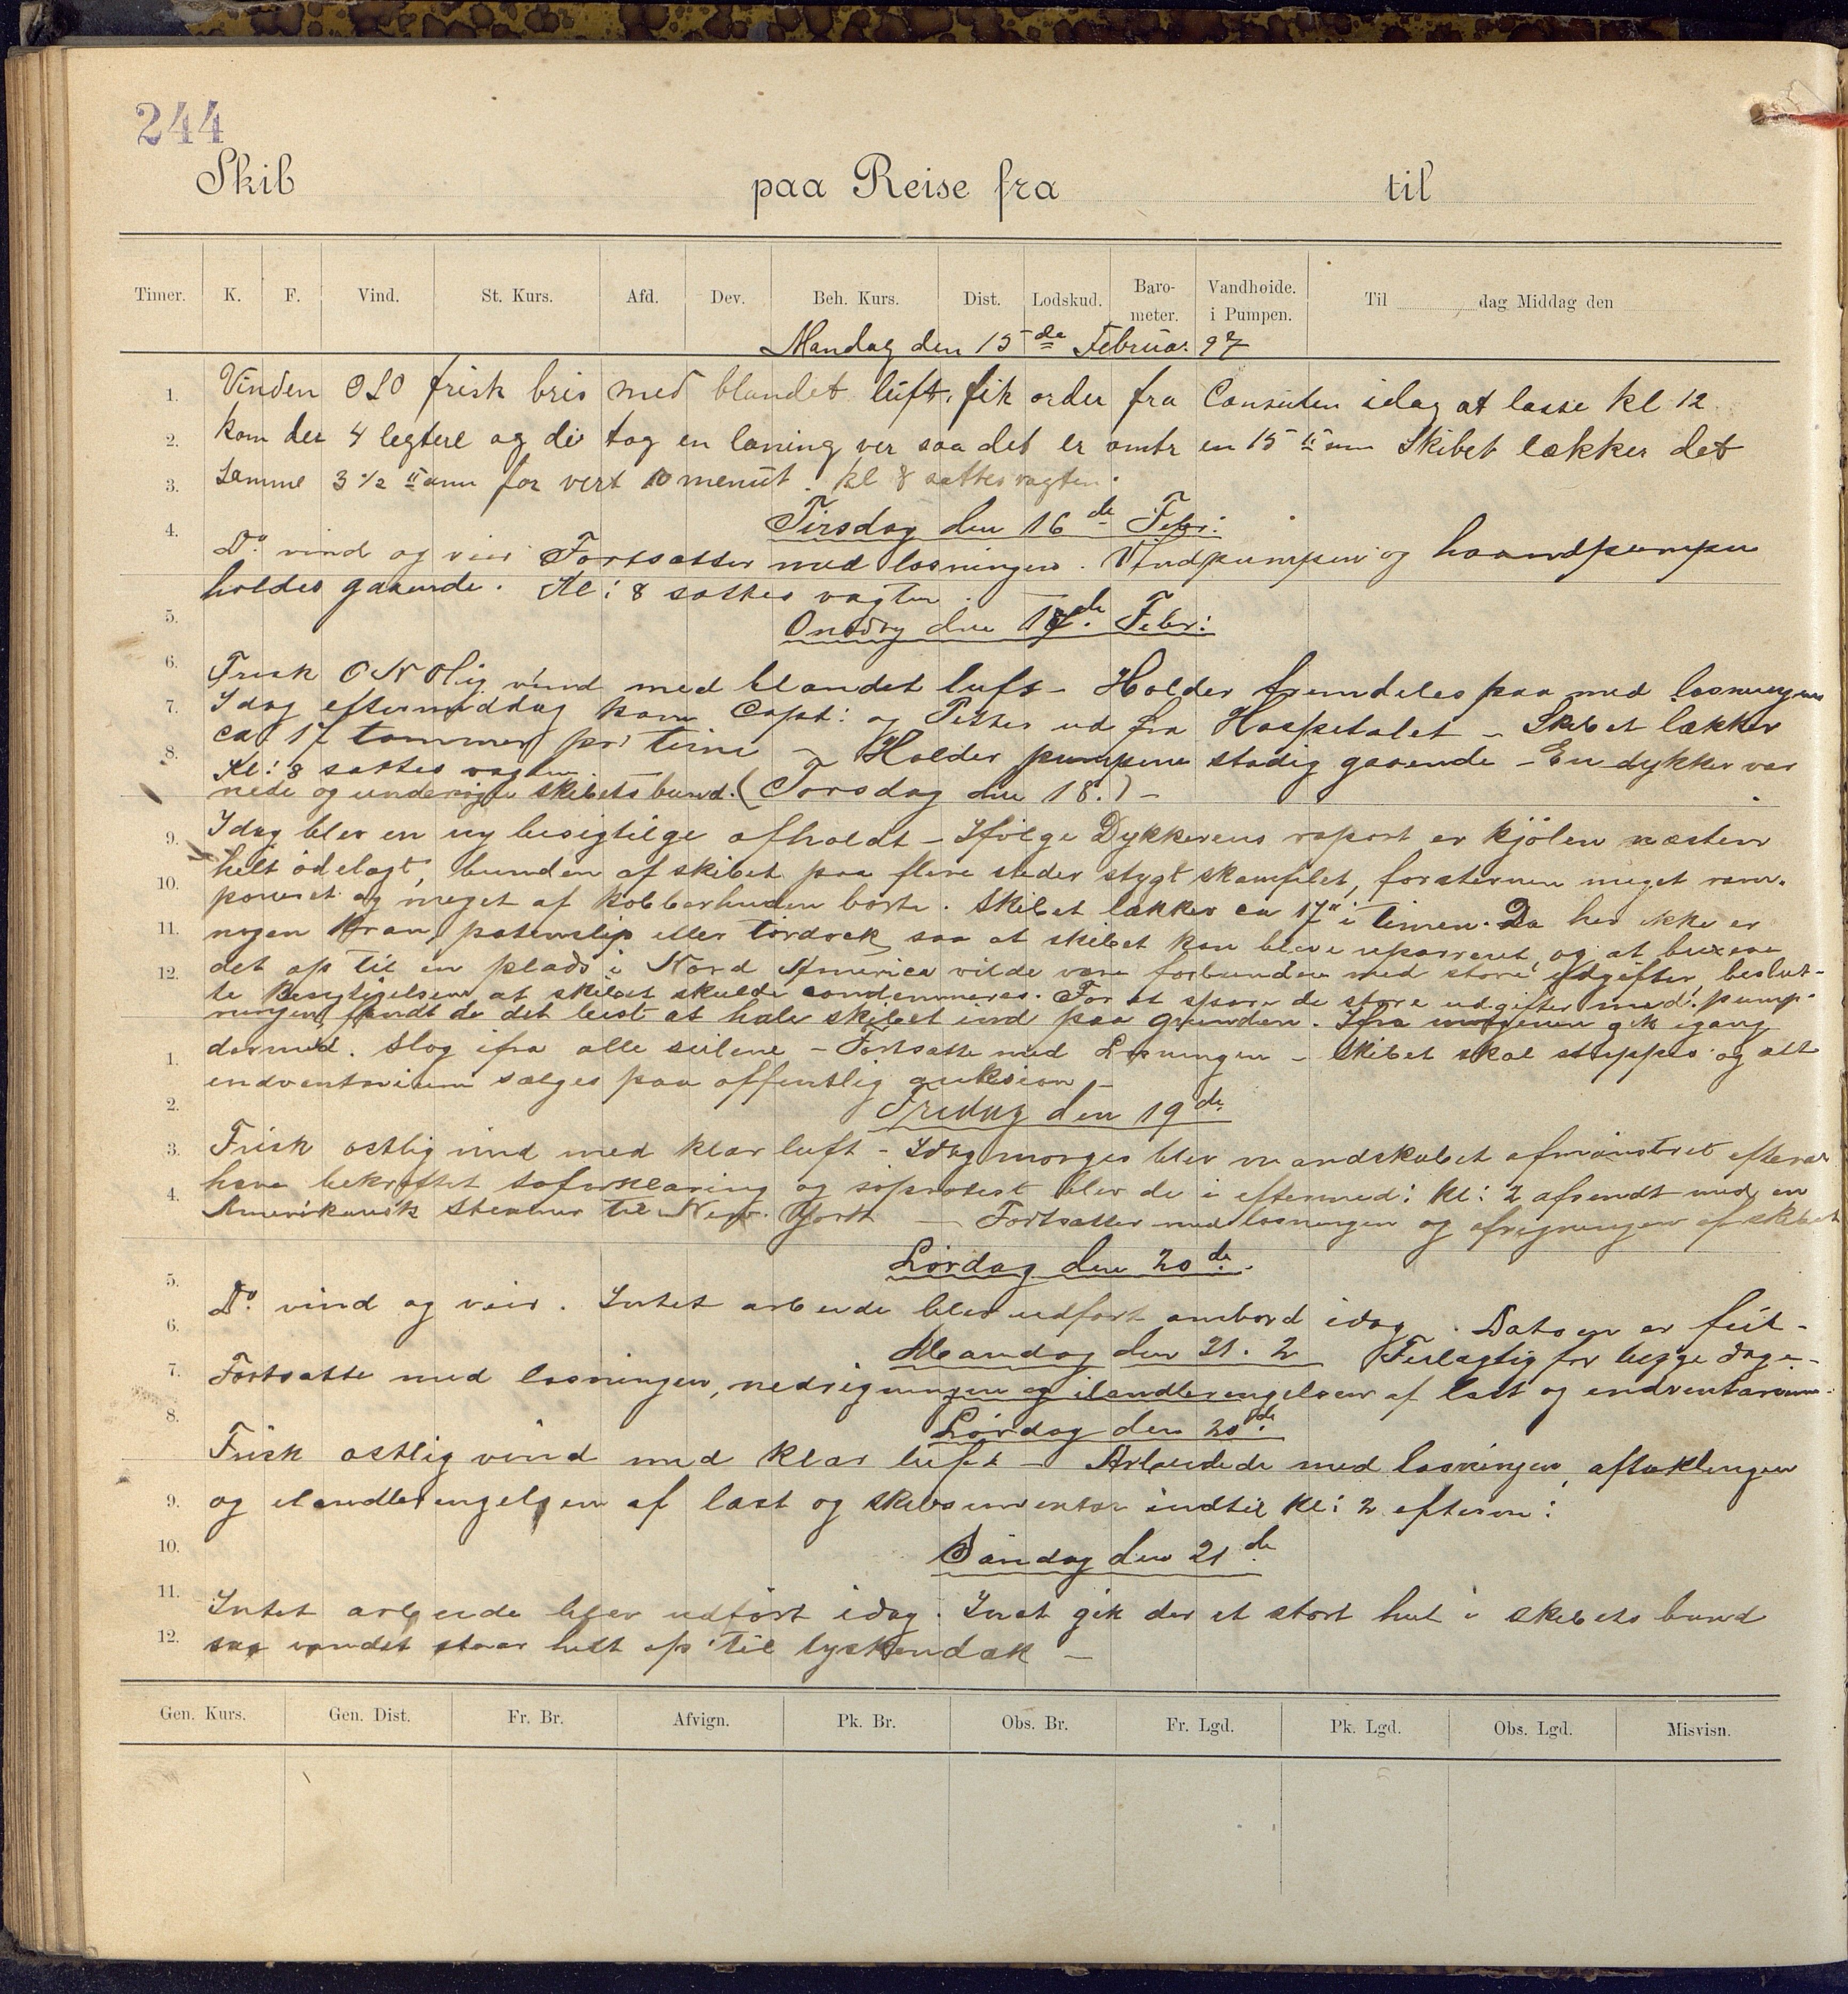 244
Skib paa Reise fra til
Timer. K. F. Vind. St. Kurs. Afd. Dev. Beh. Kurs. Dist. Lodskud. Baro- meter. Vandhøide. i Pumpen. Til dag Middag den
Mandag den 15de Februar. 97
1. Vinden OSO frisk bris med blandet luft, fik order fra Consulen idag at losse kl 12
2. kom der 4 legtere og de tog en laning ver saa det er omtr en 15 Skibet lækker det
3. samme 3 1/2 for vert 10 menut. kl 8 sattes vagten.
4. Tirsdag den 16de Febr:
Do. vind og veir Fortsatter med losningen. Vindpumpen og haandpumpen
holdes gaaende. Kl: 8 sattes vagten.
5. Onsdag den 17de Febr:
6. Frisk ONOlig vind med blandet luft - Holder fremdeles paa med losningen
7. Idag eftermiddag kom Capt: og Petter ud fra Hospitalet - Skibet lækker
8. ca. 17 tommer pr time - Holder pumpene stadig gaaende - En dykker var
Kl: 8 sattes vagten.
nede og undersøgte skibets bund. (Torsdag den 18.) -
9. Idag blev en ny besigtilge afholdt - Ifølge Dykkerens raport er kjölen næsten
10. helt ödelagt, bunden af skibet paa flere steder stygt skamfilet, forstevnen meget ram-
poneret og meget af kobberhuden borte. Skibet lækker ca 17" i timen. Da her ikke er
11. nogen Kran, patenslip eller tördock saa at skibet kan blive reparreret og at buxere
12. det op til en plads i Nord America vilde være forbunden med store udgifter beslut-
te Besigtigelsen at skibet skulde condemneres. For at spare de store udgifter med pump-
ningen, fandt de det best at hale skibet ind paa grunden. Ifra morgenen gik igang
1. dermed. Slog ifra alle seilene - Fortsatte med Losningen - Skibet skal strippes og alt
endventarium sælges paa offentlig auksion -
2. Fredag den 19de
3. Frisk ostlig vind med klar luft - Idag morges blev mandskabet afmönstret efter at
4. have bekræftet soforklaring og söprotest blev de i eftermed: kl: 2 afsendt med en
Amerikansk Steamer til New York - Fortsatter med losningen og afregningen af skibet
Lördag den 20de
5. Do. vind og veir. Intet arbeide blev udfört ombord idag. Datoen er feil-
6. Mandag den 21. 2 Feilagtig for begge dage.-
7. Fortsatte med losningen, nedrigningen og ilandbringelsen af last og endventarium.
8. Lördag den 20de
Frisk ostlig vind med klar luft - Arbeidede med losningen, aftaklingen
9. og ilandbringelsen af last og skibsinventar indtil kl: 2 efterm:
10. Söndag den 21de
11. Intet arbeide blev udfört idag. Inat gik der et stort hul i skibets bund
12. saa vandet staar helt op til
Gen. Kurs. Gen. Dist. Fr. Br. Afvign. Pk. Br. Obs. Br. Fr. Lgd. Pk. Lgd. Obs. Lgd. Misvisn.